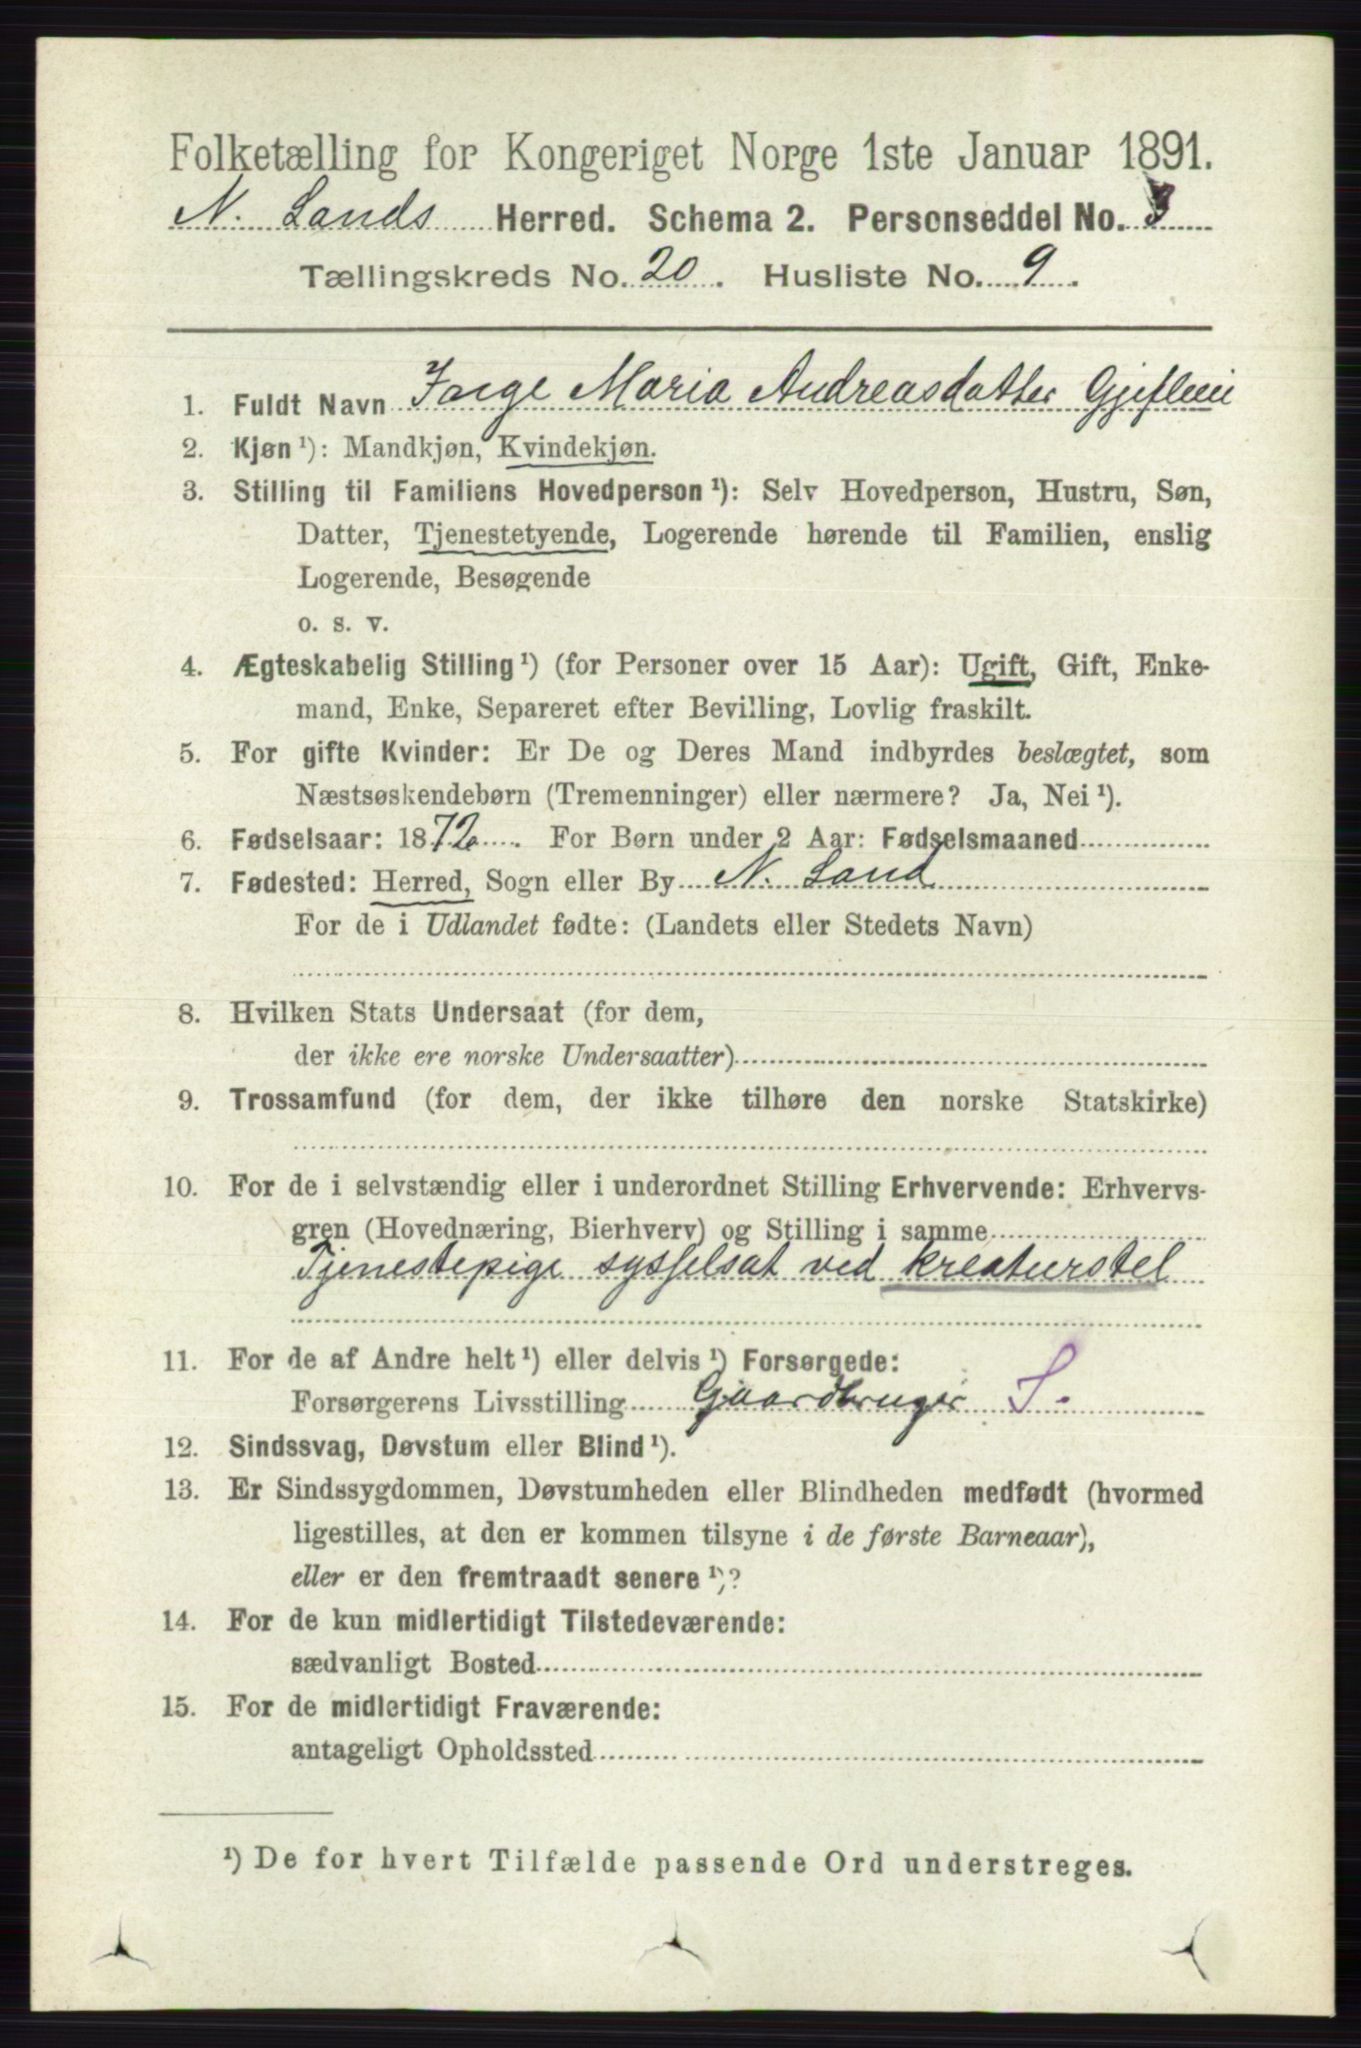 Folketælling for Kongeriget Norge 1ste Januar 1891.
N. Lands Herred. Schema 2. Personseddel No. 3
Tællingskreds No. 20. Husliste No. 9.
1. Fuldt Navn Inge Maria Andreasdatter
2. Kjøn ¹): Mandkjøn, Kvindekjøn.
3. Stilling til Familiens Hovedperson ¹): Selv Hovedperson, Hustru, Søn,
Datter, Tjenestetyende, Logerende hørende til Familien, enslig
Logerende, Besøgende
o. s. v.
4. Ægteskabelig Stilling ¹) (for Personer over 15 Aar): Ugift, Gift, Enke-
mand, Enke, Separeret efter Bevilling, Lovlig fraskilt.
5. For gifte Kvinder: Er De og Deres Mand indbyrdes beslægtet, som
Næstsøskendebørn (Tremenninger) eller nærmere? Ja, Nei ¹).
6. Fødselsaar: 1872. For Børn under 2 Aar: Fødselsmaaned
7. Fødested: Herred, Sogn eller By N. Land
For de i Udlandet fødte: (Landets eller Stedets Navn)
8. Hvilken Stats Undersaat (for dem,
der ikke ere norske Undersaatter)
9. Trossamfund (for dem, der ikke tilhøre den norske Statskirke)
10. For de i selvstændig eller i underordnet Stilling Erhvervende: Erhvervs-
gren (Hovednæring, Bierhverv) og Stilling i samme
Tjenestepige sysselsat ved kreaturstel
11. For de af Andre helt ¹) eller delvis ¹) Forsørgede:
Forsørgerens Livsstilling Gaardbruger S.
12. Sindssvag, Døvstum eller Blind ¹).
13. Er Sindssygdommen, Døvstumheden eller Blindheden medfødt (hvormed
ligestilles, at den er kommen tilsyne i de første Barneaar),
eller er den fremtraadt senere ¹)?
14. For de kun midlertidigt Tilstedeværende:
sædvanligt Bosted
15. For de midlertidigt Fraværende:
antageligt Opholdssted
¹) De for hvert Tilfælde passende Ord understreges.